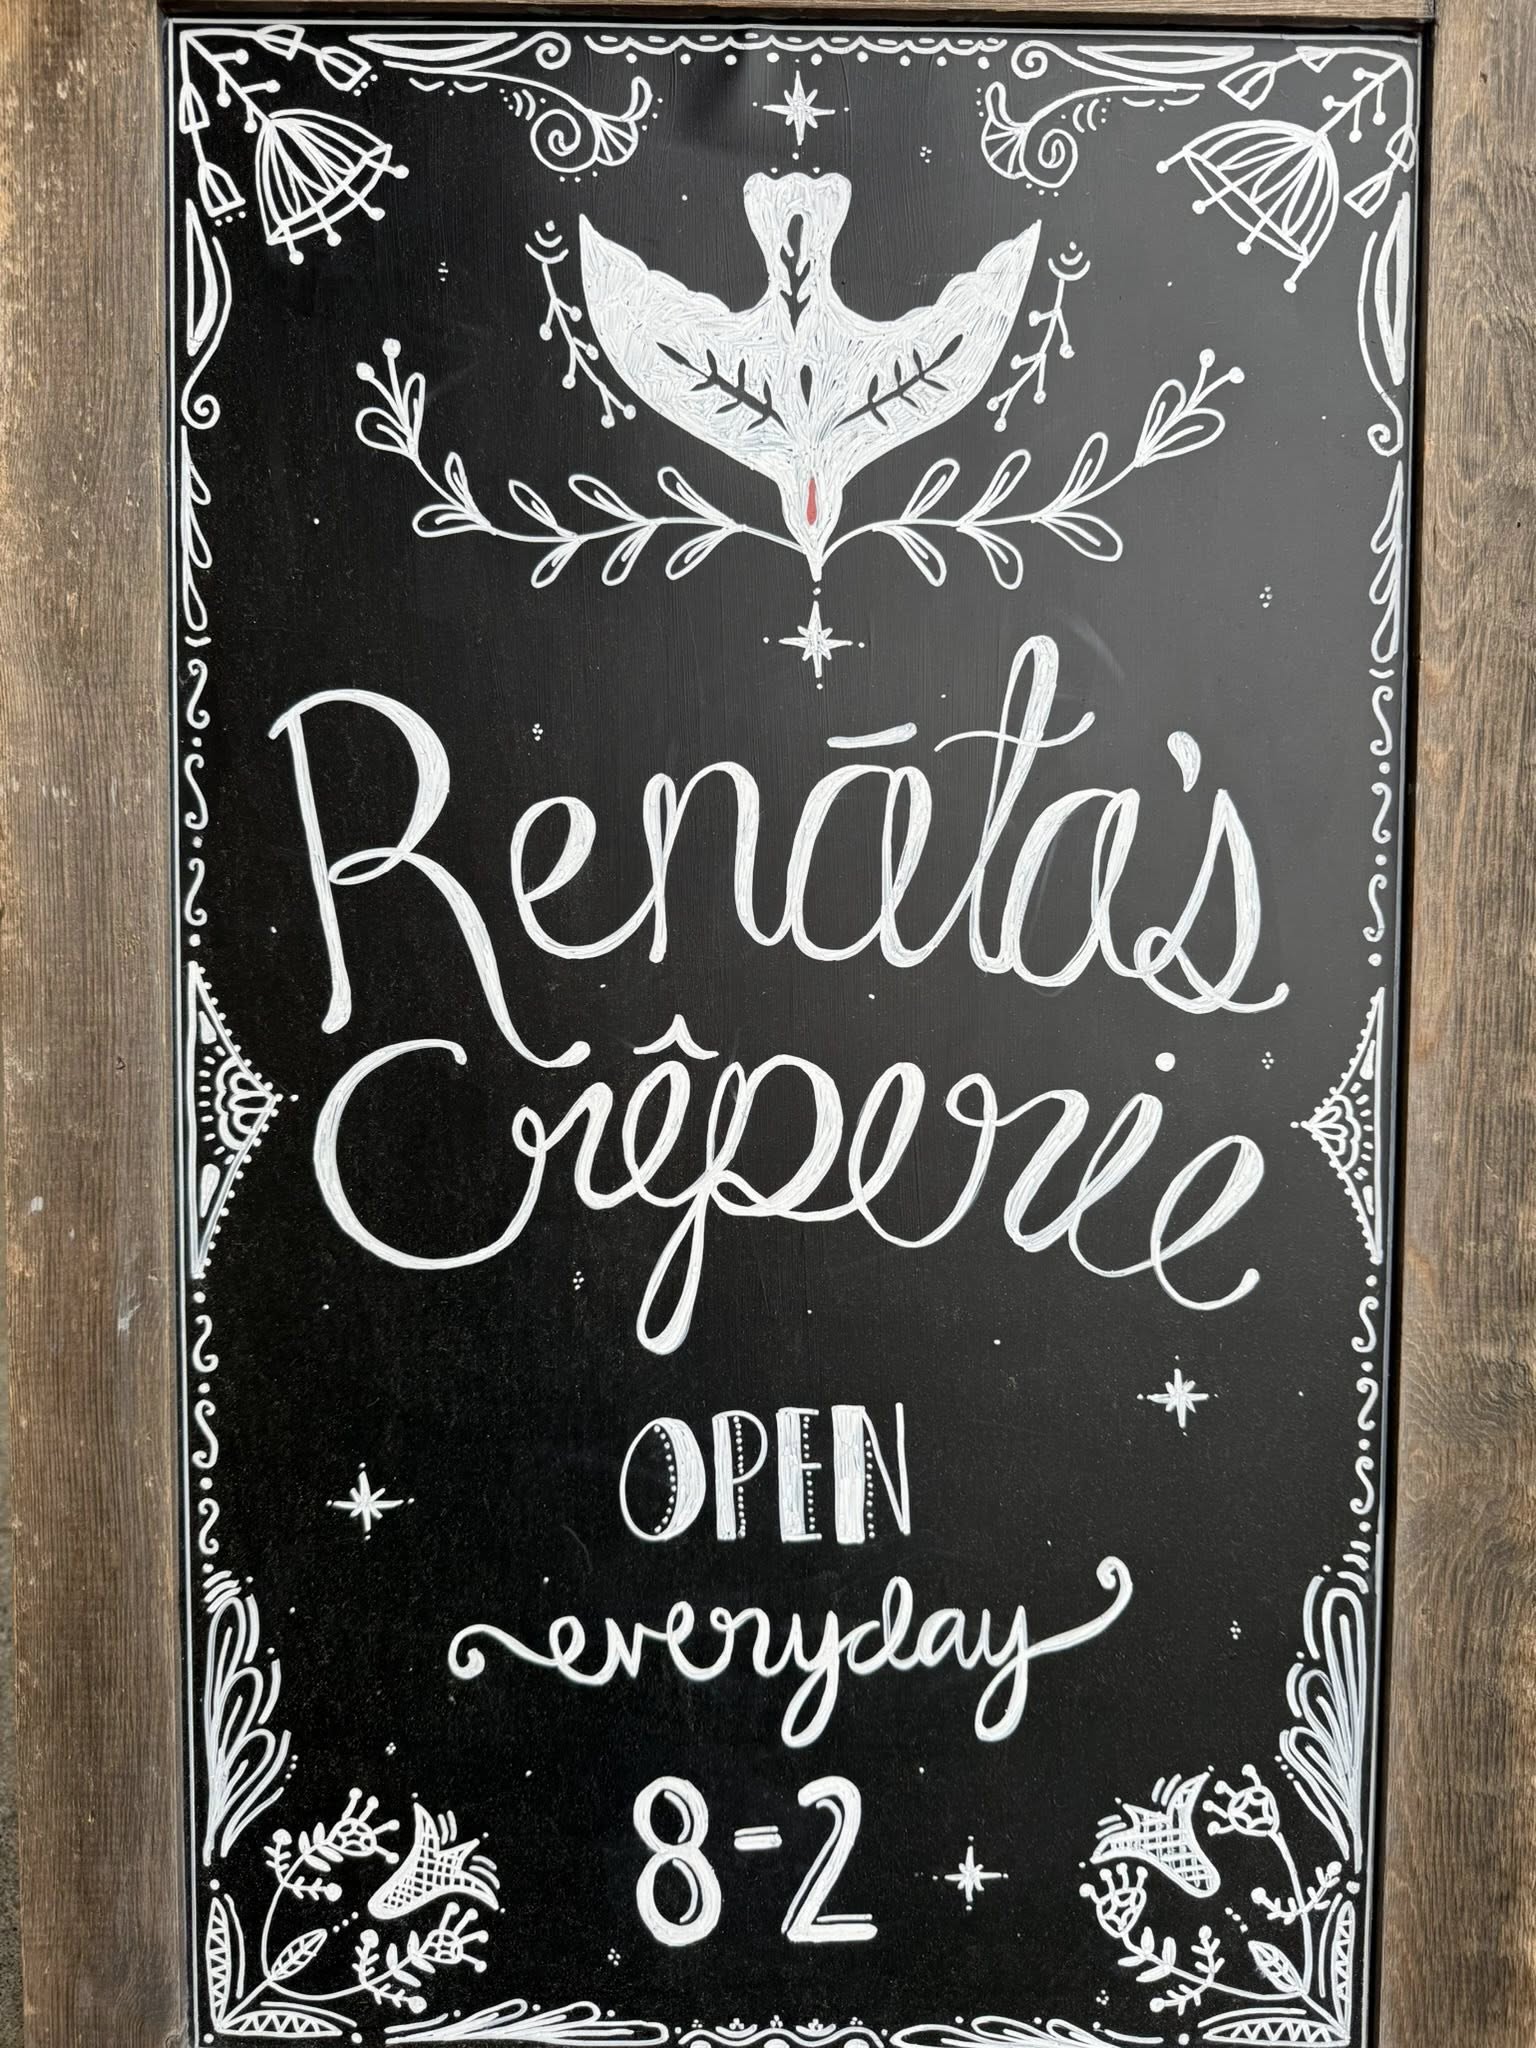 Renāta's
Crêperie
OPEN
everyday
8-2